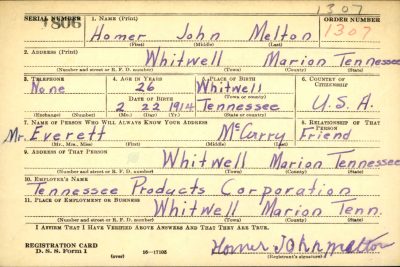 1307
SERIAL NUMBER 1. NAME (Print) ORDER NUMBER
1806 Homer John Melton 1307
(First) (Middle) (Last)
2. ADDRESS (Print)
Whitwell Marion Tennessee
(Number and street or R. F. D. number) (Town) (County) (State)
3. TELEPHONE 4. AGE IN YEARS 5. PLACE OF BIRTH 6. COUNTRY OF CITIZENSHIP
None 26 Whitwell
DATE OF BIRTH (Town or county)
2 22 1914 Tennessee U.S.A.
(Exchange) (Number) (Mo.) (Day) (Yr.) (State or country)
7. NAME OF PERSON WHO WILL ALWAYS KNOW YOUR ADDRESS 8. RELATIONSHIP OF THAT PERSON
Mr. Everett McCurry Friend
(Mr., Mrs., Miss) (First) (Middle) (Last)
9. ADDRESS OF THAT PERSON
Whitwell Marion Tennessee
(Number and street or R. F. D. number) (Town) (County) (State)
10. EMPLOYER'S NAME
Tennessee Products Corporation
11. PLACE OF EMPLOYMENT OR BUSINESS
Whitwell Marion Tenn.
(Number and street or R. F. D. number) (Town) (County) (State)
I AFFIRM THAT I HAVE VERIFIED ABOVE ANSWERS AND THAT THEY ARE TRUE.
REGISTRATION CARD
D. S. S. Form 1 (over) 16—17105 Homer John Melton
(Registrant's signature)